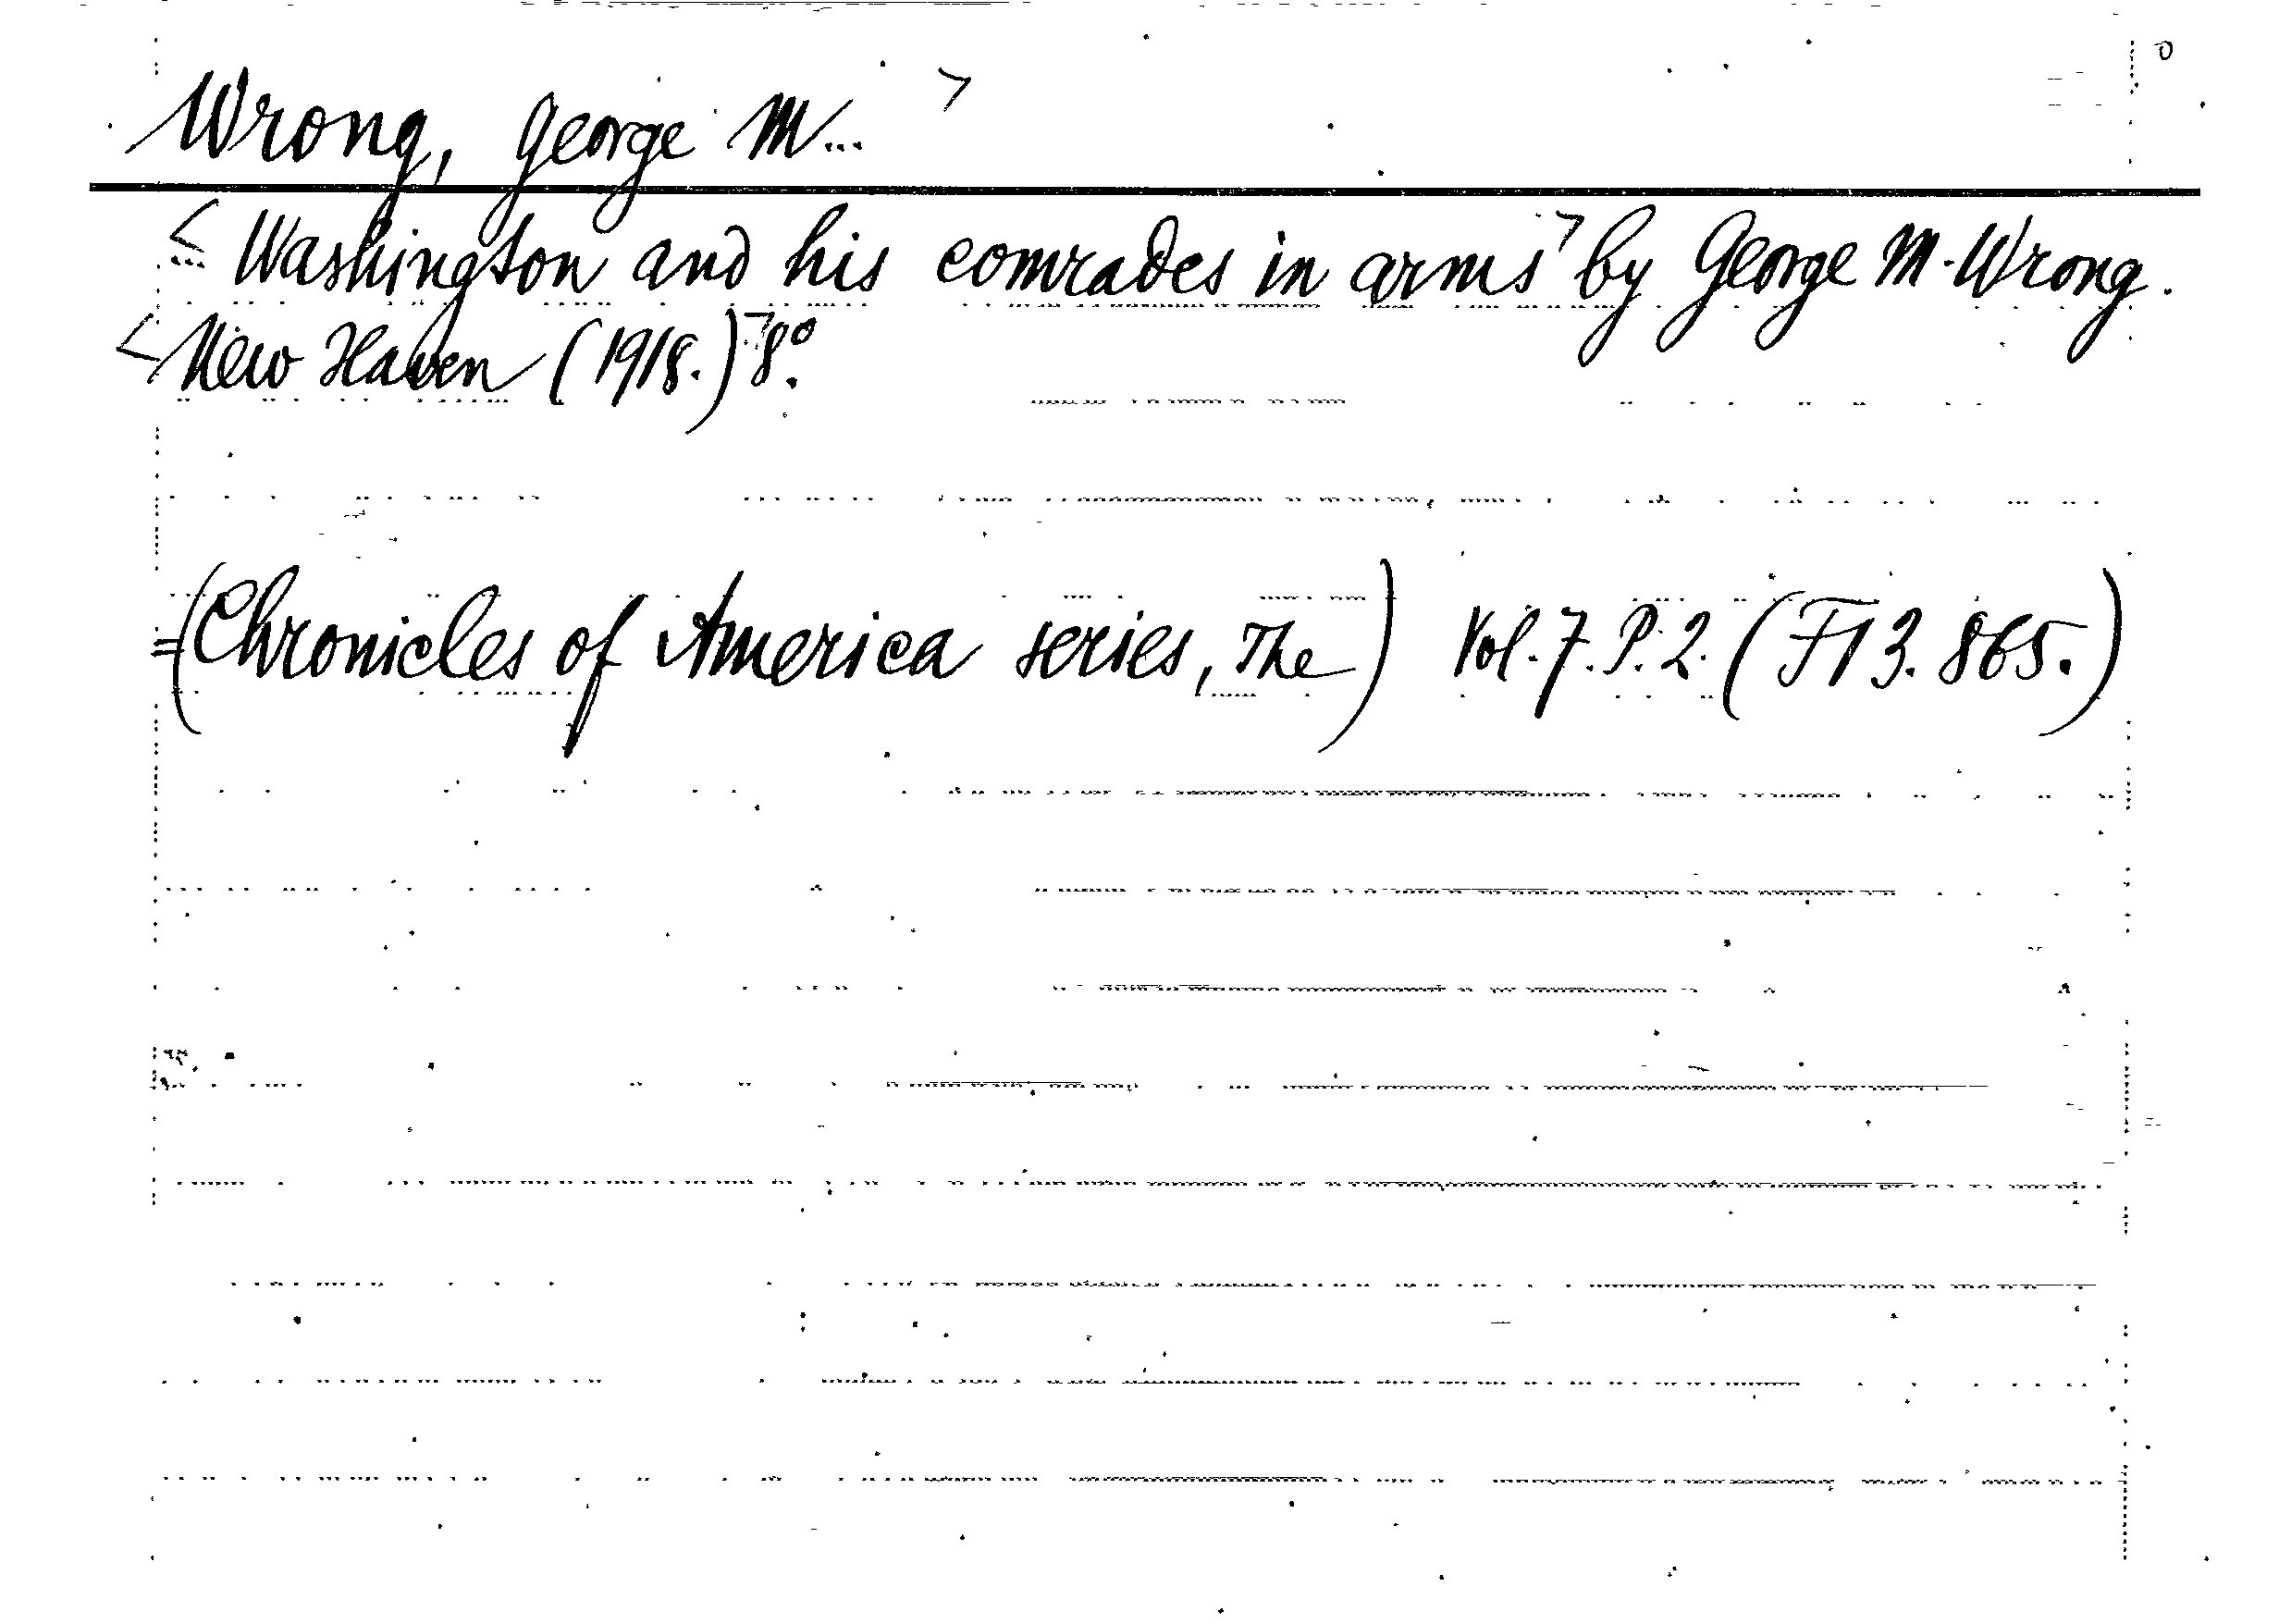 Wrong, George M...
Washington and his comrades in arms by George M. Wrong.
New Haven (1918.) 8°.
=(Chronicles of America series, The) Vol. 7. P. 2. (F13. 865.)